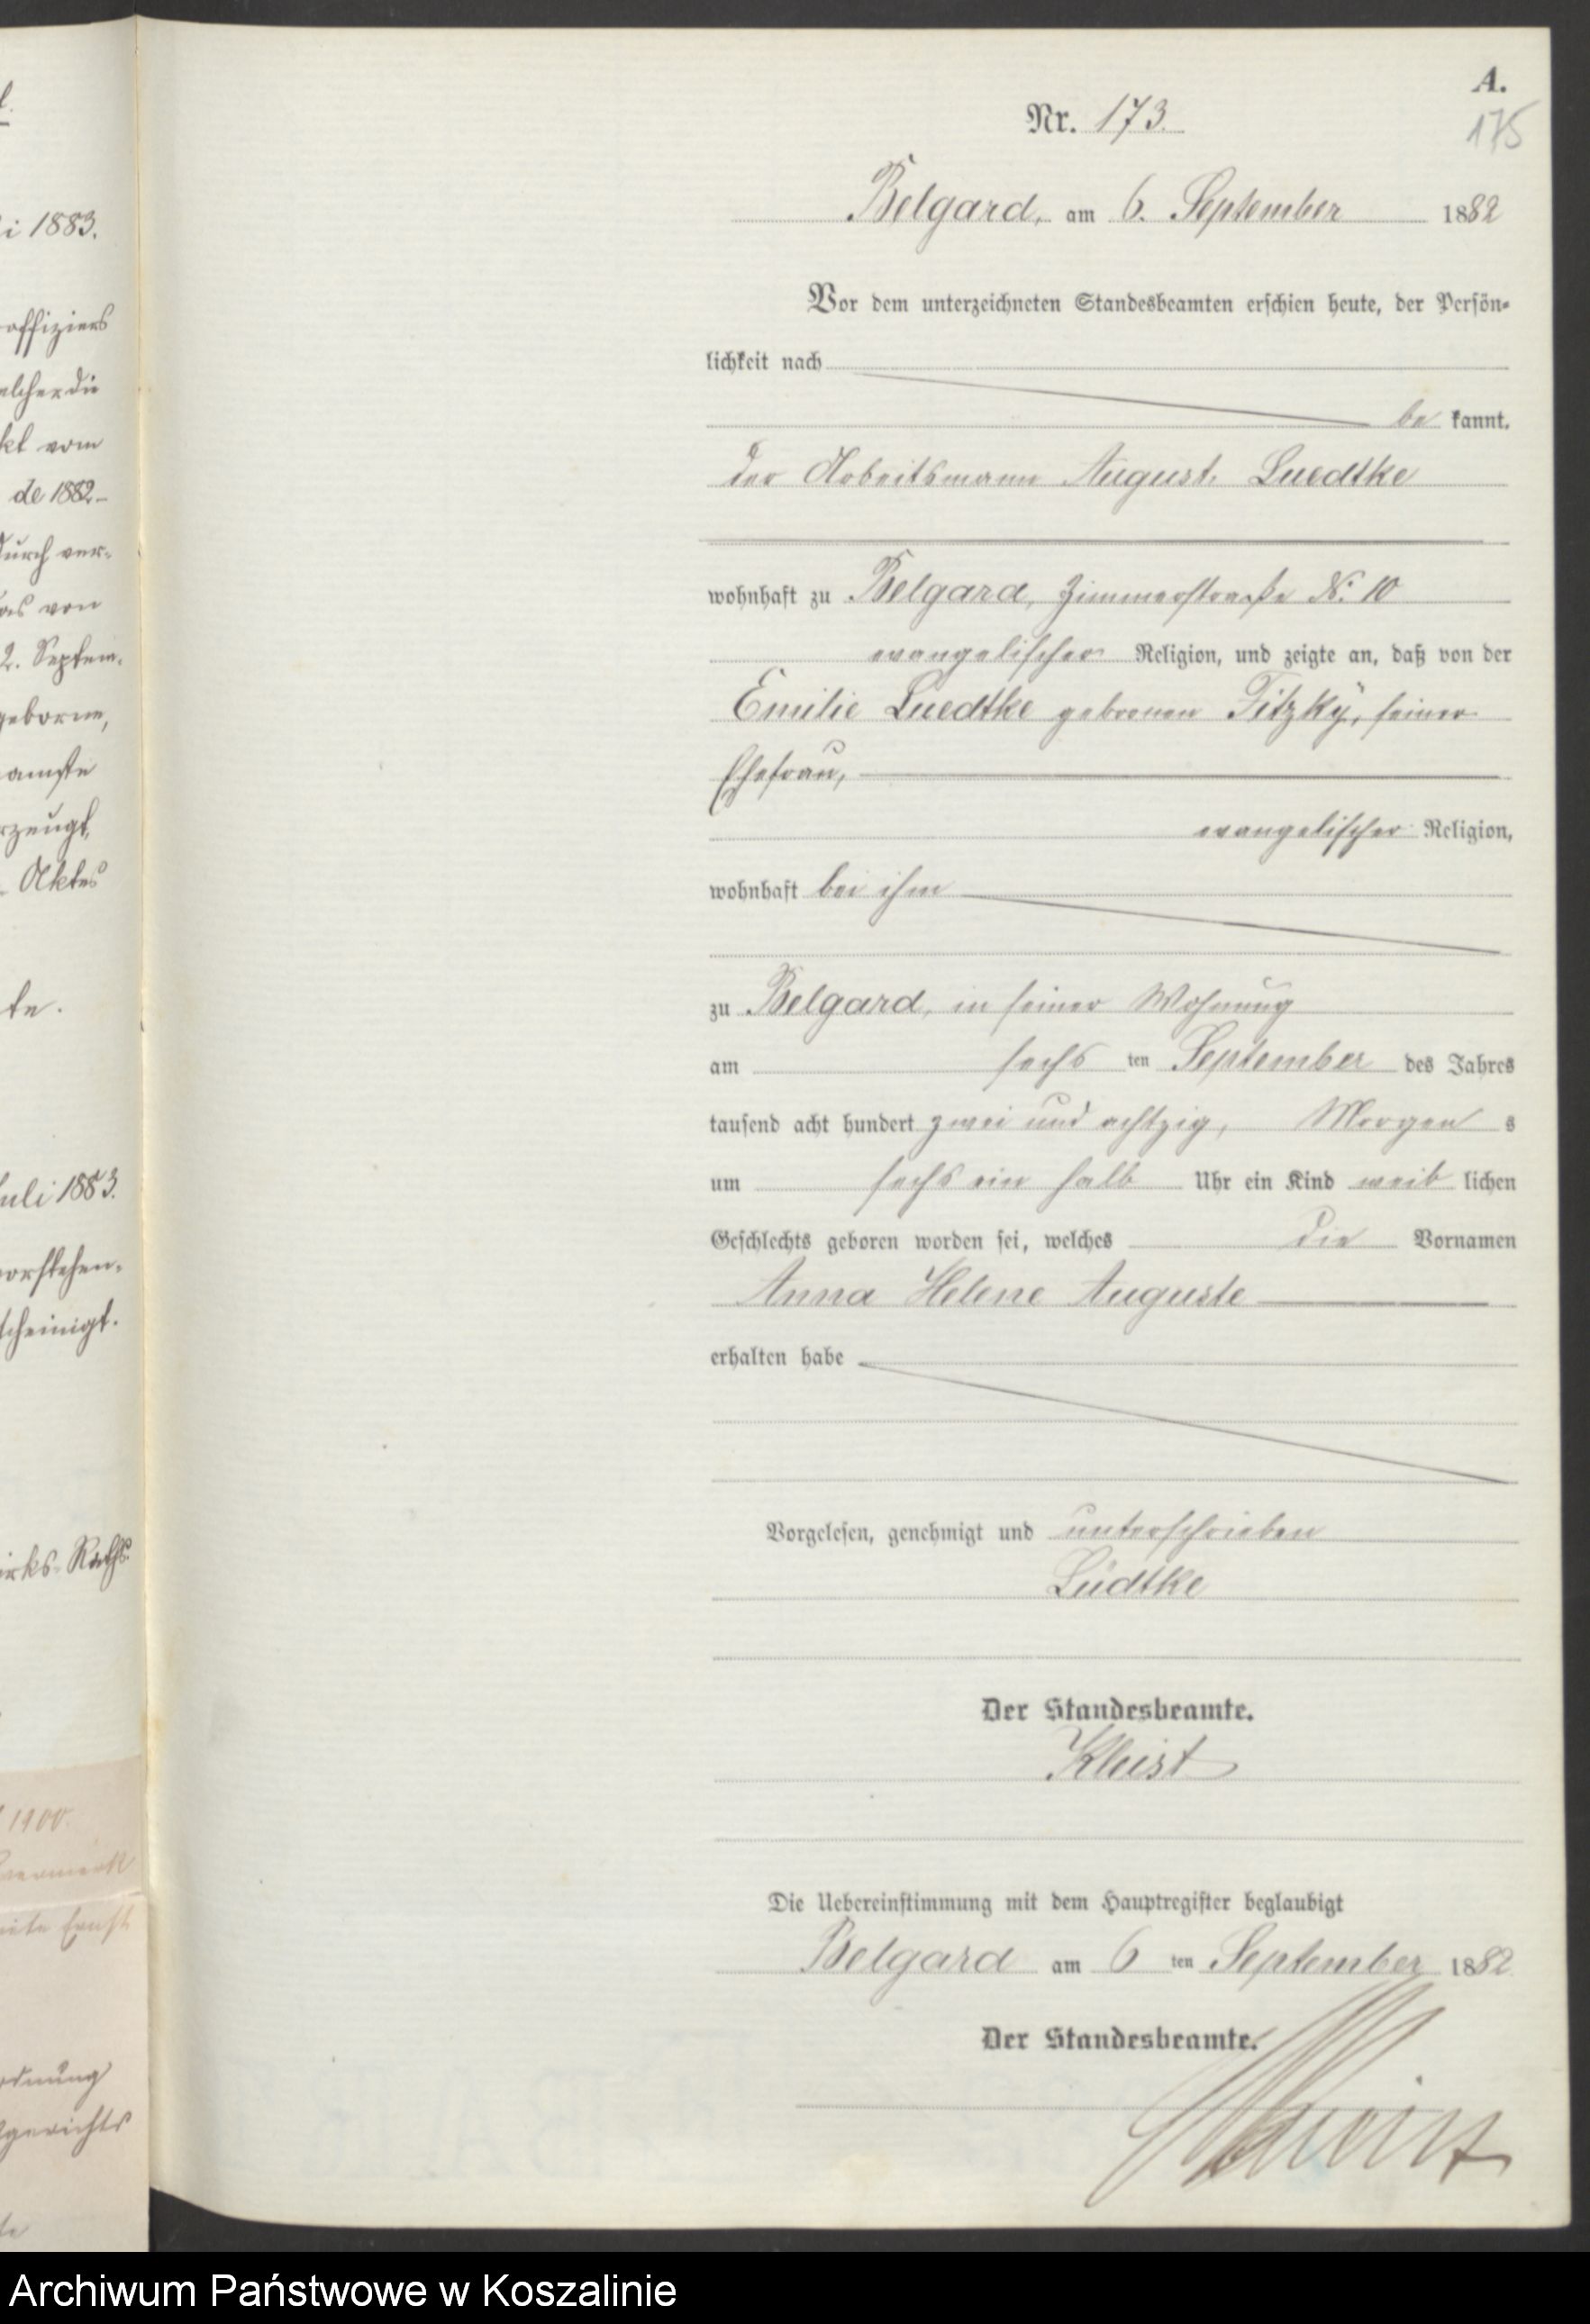 i 1883.
offiziers
elcher die
kt vom
de 1882.
durch ver-
as von
2. Septem-
geborene,
amste
rzeugt,
Aktes
te.
Juli 1883.
vorstehen-
scheinigt.
irks-Raths
1900.
vermerk
eite Ernst
rdnung
gerichts
te
A.
Nr. 173.
175
Belgard, am 6. September 1882
Vor dem unterzeichneten Standesbeamten erschien heute, der Persön-
lichkeit nach
be kannt,
der Arbeitsmann August Luedtke
wohnhaft zu Belgard, Zimmerstraße N: 10
evangelischer Religion, und zeigte an, daß von der
Emilie Luedtke geborenen Titzky, seiner
Ehefrau,
evangelischer Religion,
wohnhaft bei ihm
zu Belgard, in seiner Wohnung
am sechs ten September des Jahres
tausend acht hundert zwei und achtzig, Morgen s
um sechs ein halb Uhr ein Kind weib lichen
Geschlechts geboren worden sei, welches die Vornamen
Anna Helene Auguste
erhalten habe
Vorgelesen, genehmigt und unterschrieben
Lüdtke
Der Standesbeamte.
Kleist
Die Uebereinstimmung mit dem Hauptregister beglaubigt
Belgard am 6 ten September 1882
Der Standesbeamte.
Kleist
Archiwum Państwowe w Koszalinie